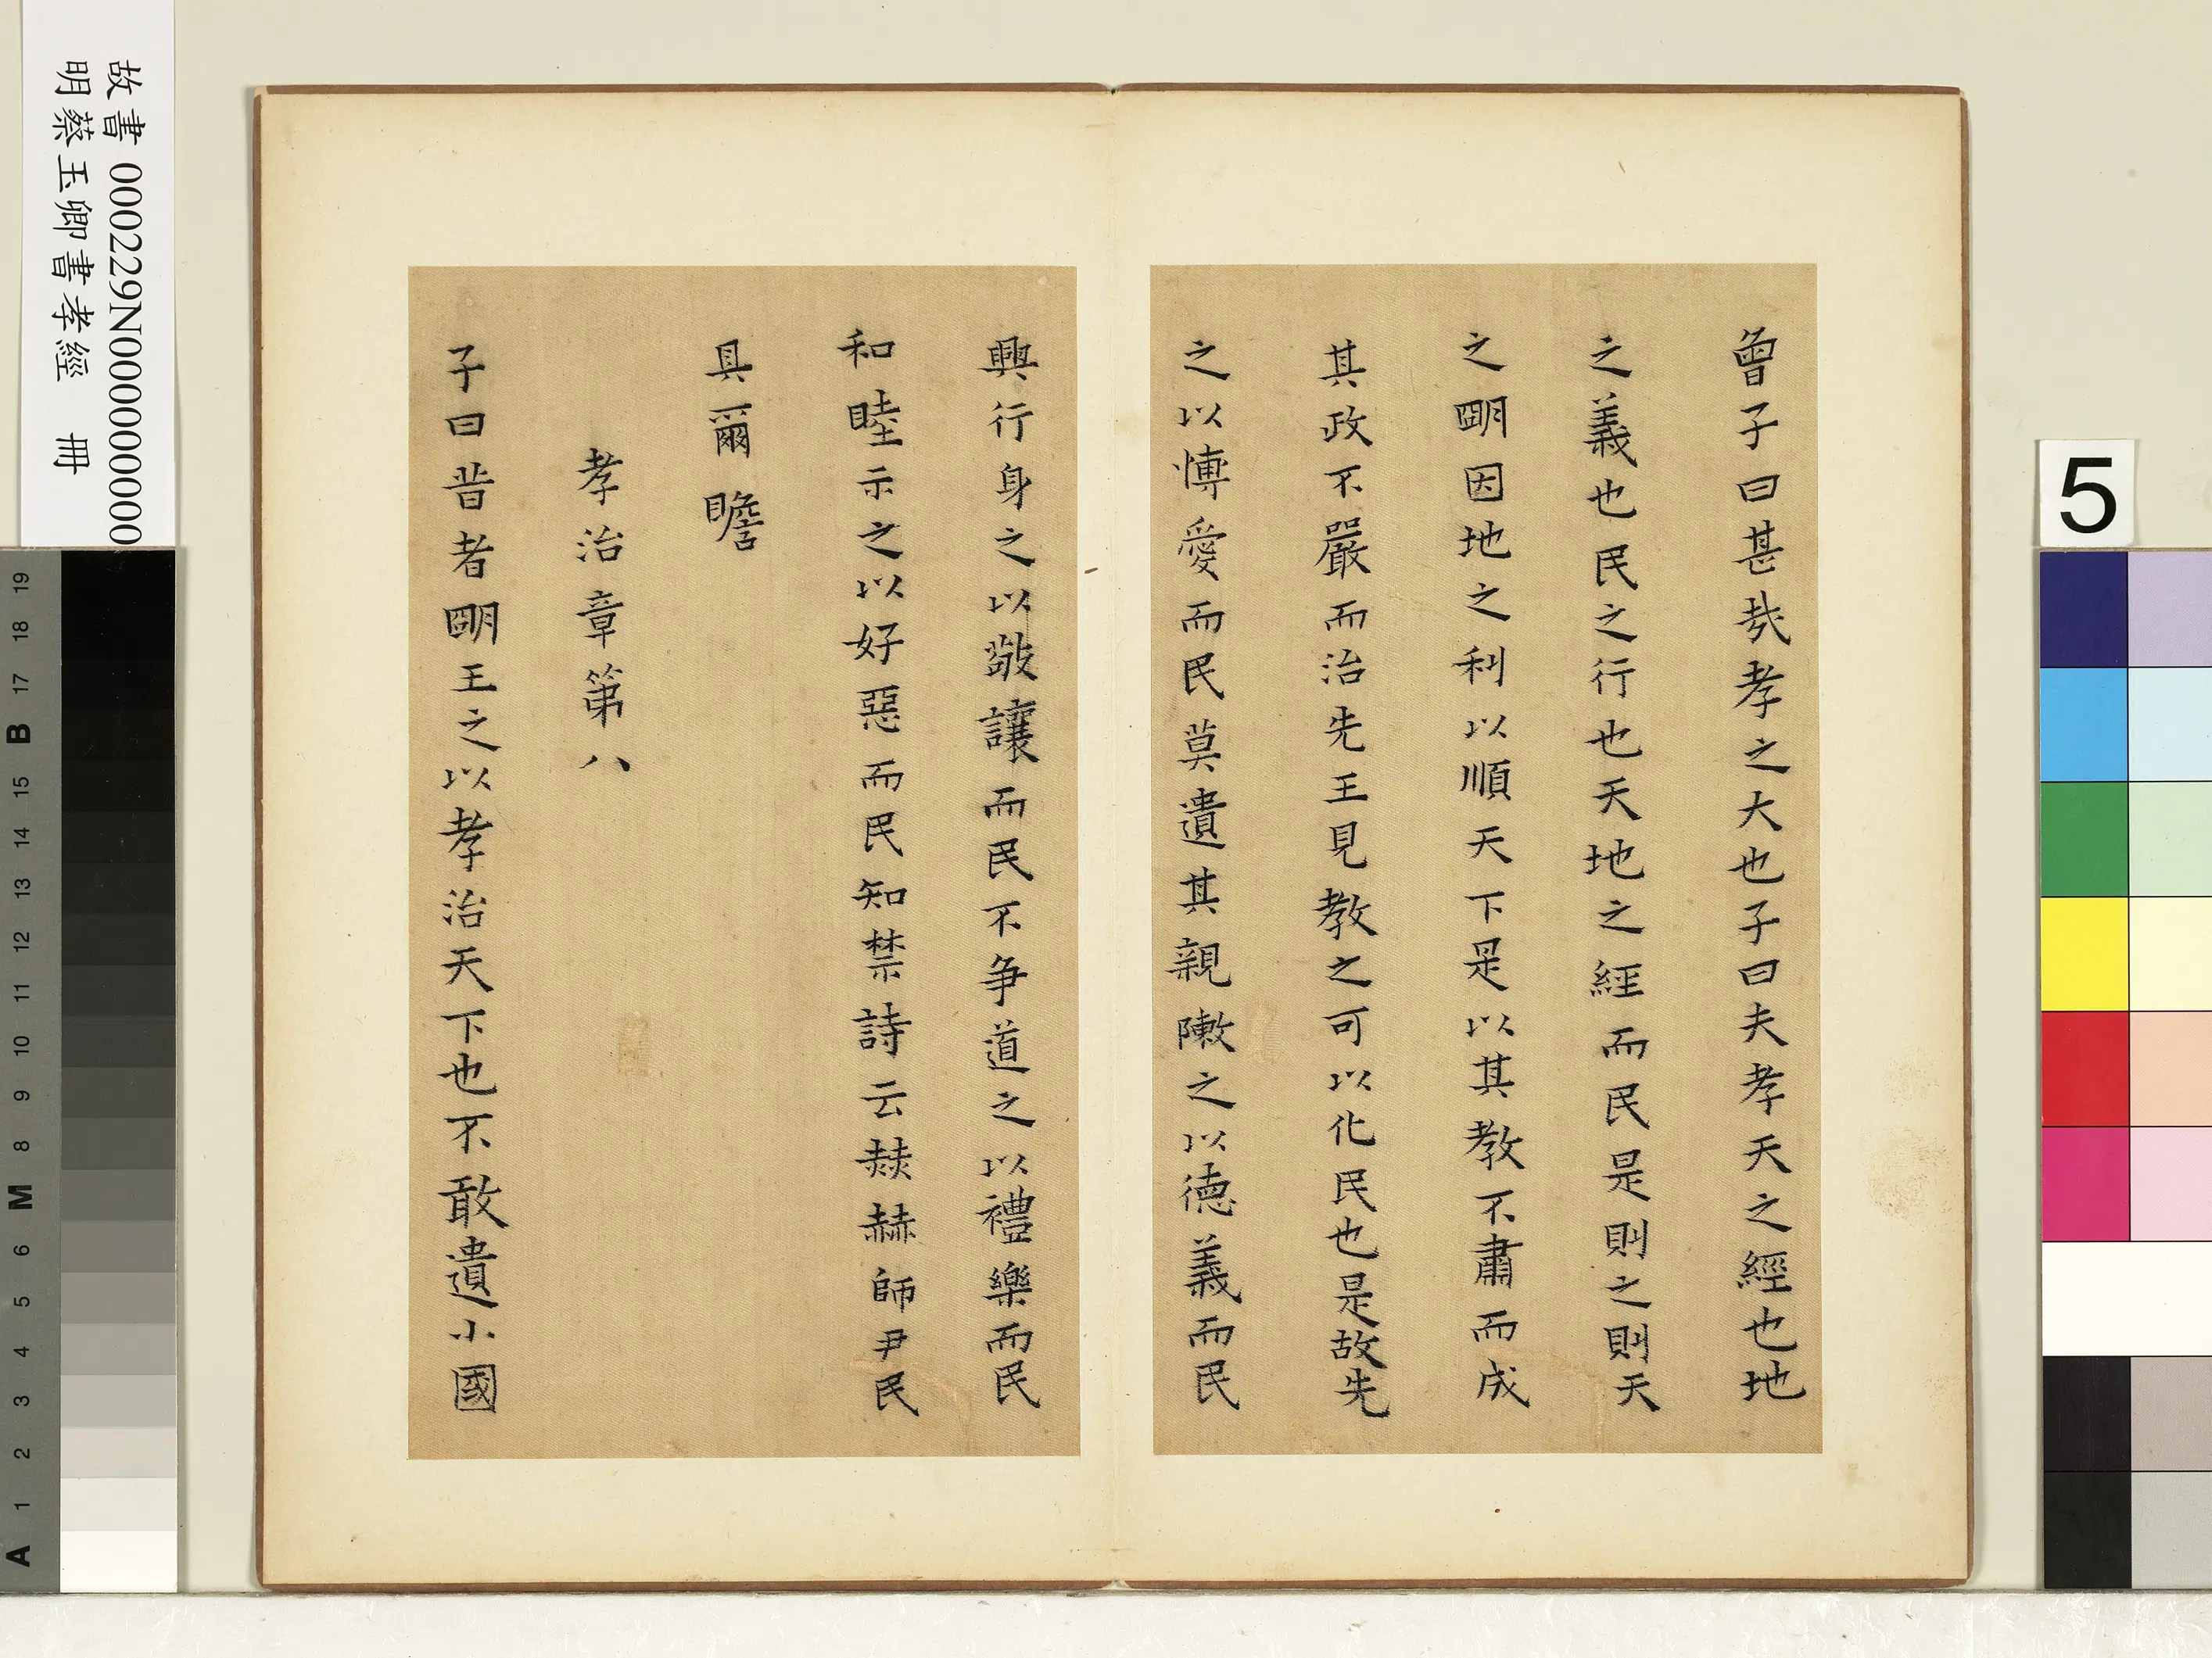 曾子曰甚哉孝之大也子曰夫孝天之經也地
之義也民之行也天地之經而民是則之則天
之明因地之利以順天下是以其教不肅而成
其政不嚴而治先王見教之可以化民也是故先
之以博愛而民莫遺其親陳之以德義而民
興行身之以敬讓而民不爭道之以禮樂而民
和睦示之以好惡而民知禁詩云赫赫師尹民
具爾瞻
孝治章第八
子曰昔者明王之以孝治天下也不敢遺小國
故書 000229N000000000
明蔡玉卿書孝經 冊
5
19
18
17
B
15
14
13
12
11
10
9
8
M
6
5
4
3
2
1
A